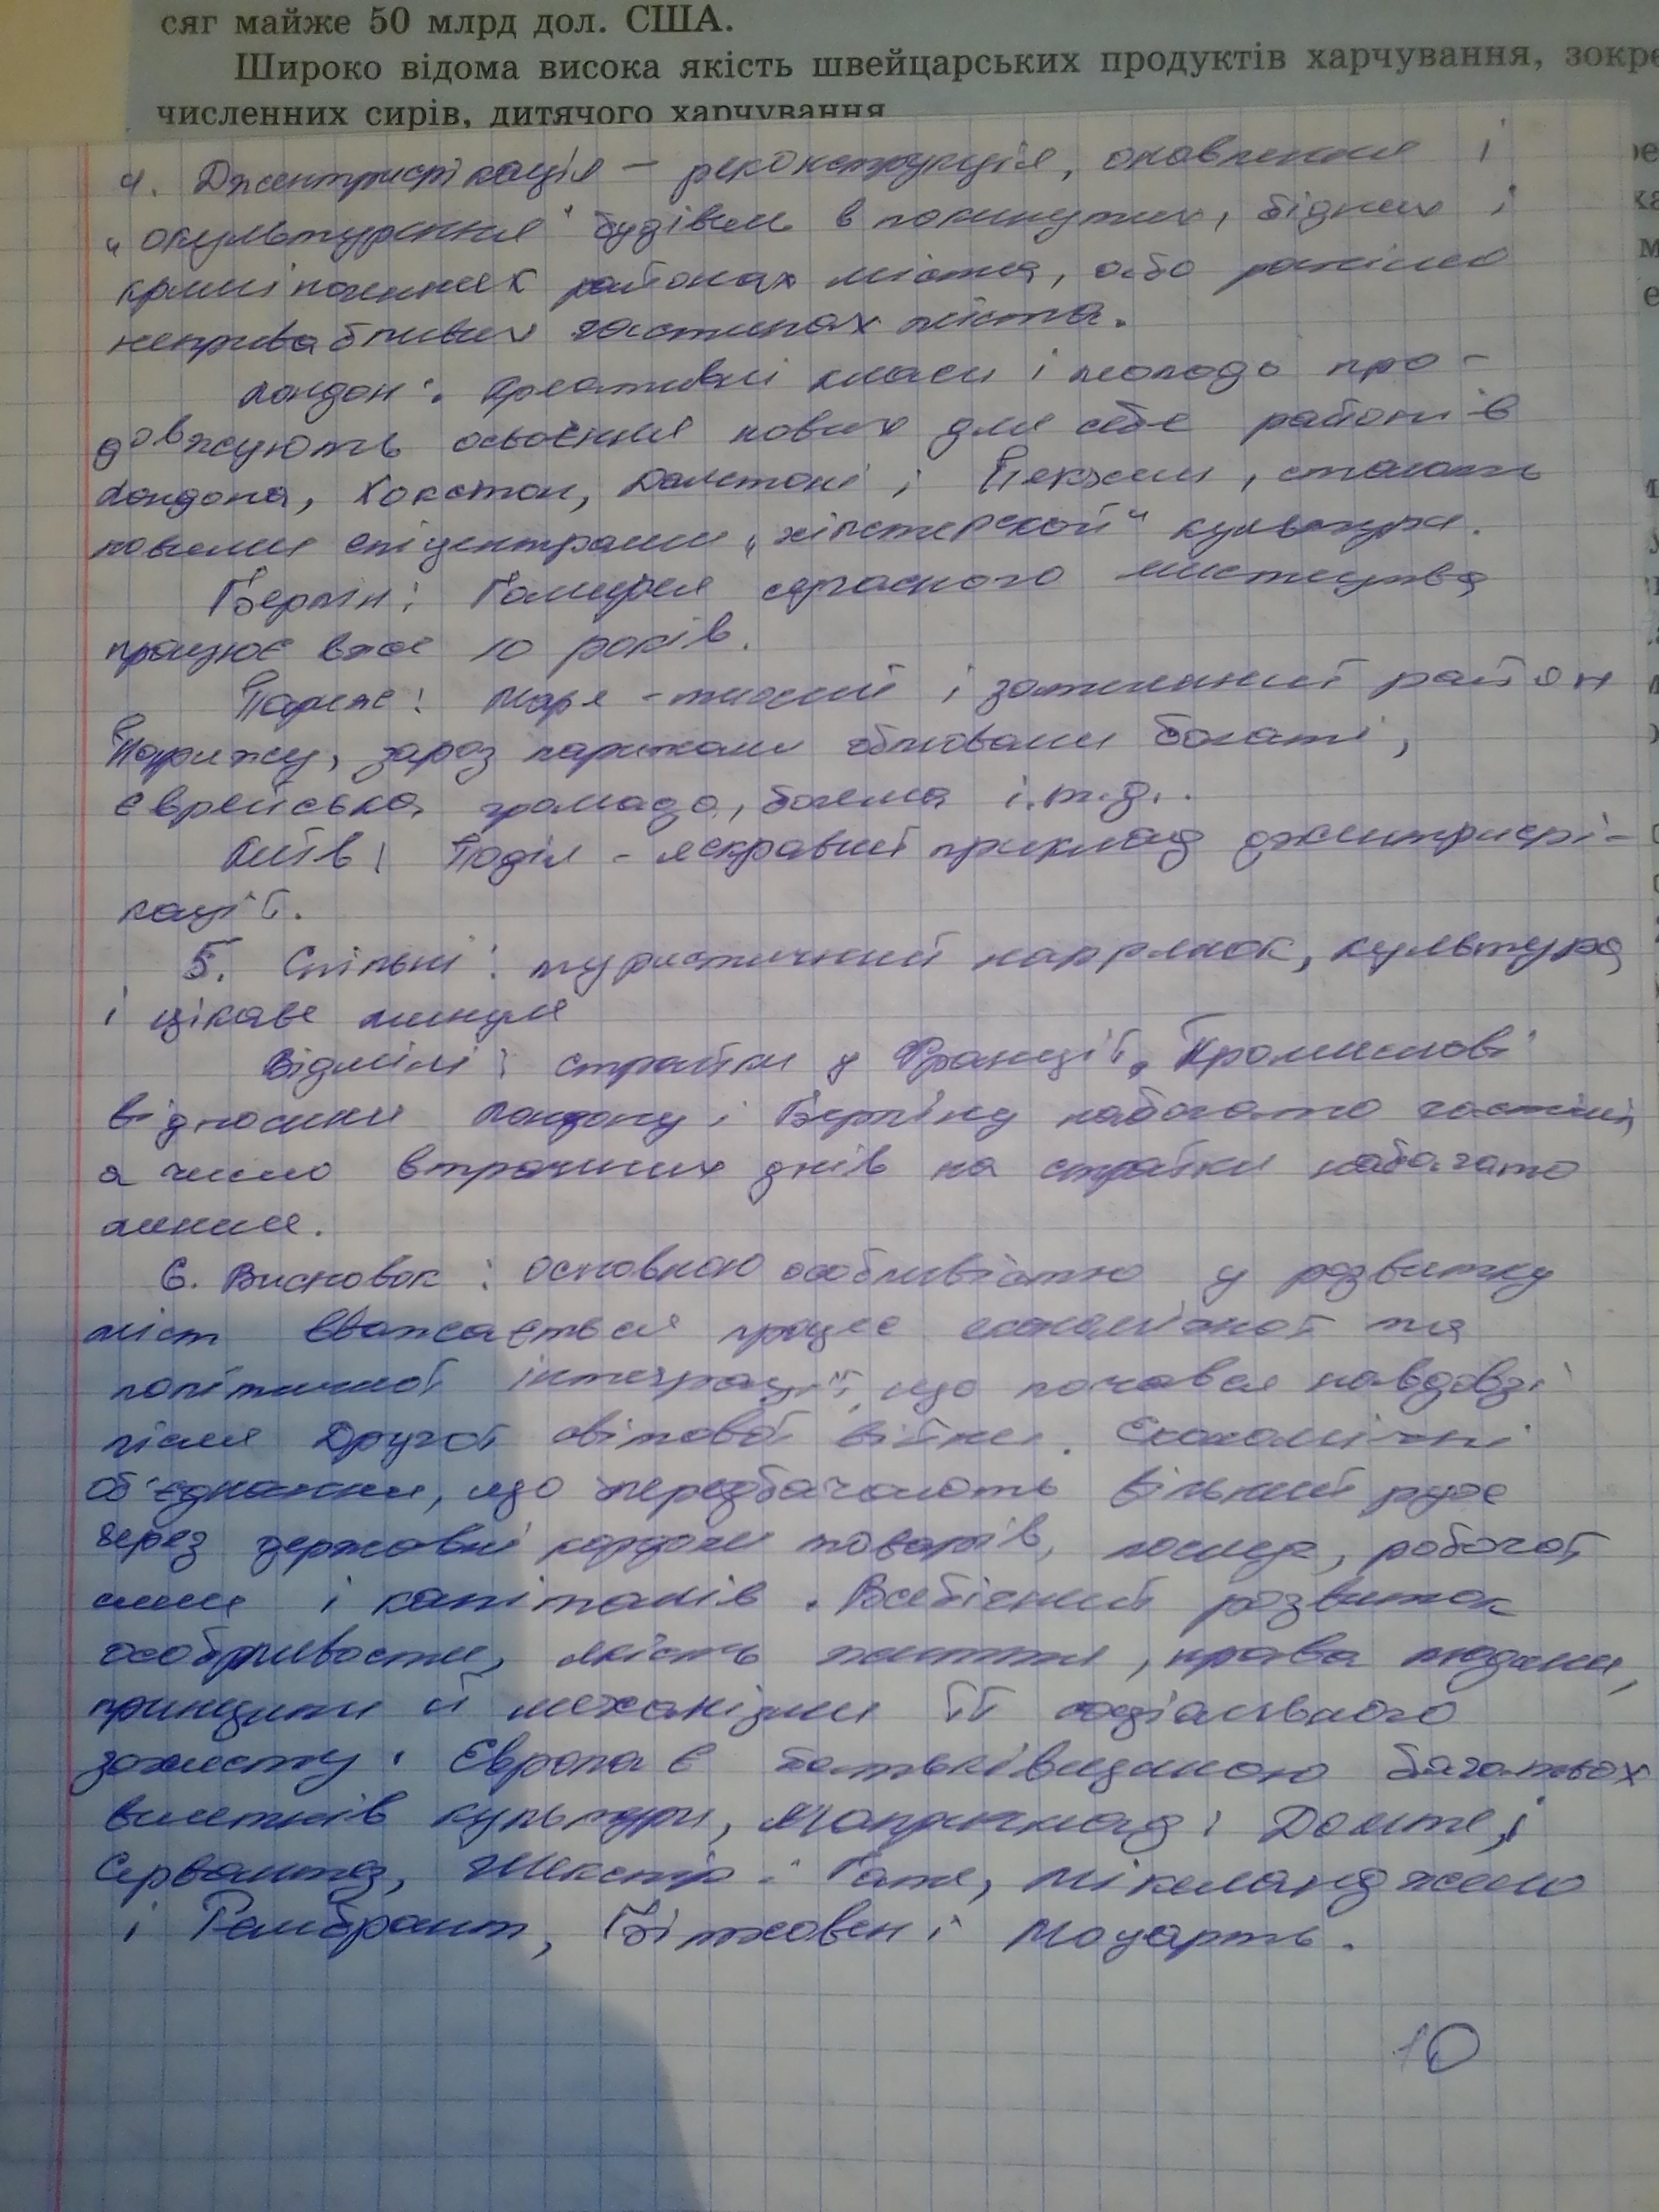 сяг майже 50 млрд дол. США.
Широко відома висока якість швейцарських продуктів харчування, зокре
численних сирів, дитячого харчування
4. Джентрифікація – реконструкція, оновлення і
„окультурення" будівель в покинутих, бідних і
кримінальних районах міста, або раніше
непривабливих частинах міста.
Лондон: Креативні класи і молодь про-
довжують освоєння нових для себе районів
Лондона, Хокстон, Далстоні і Пекхем, стають
новими епіцентрами „хіпстерской" культури.
Берлін: Галерея сучасного мистецтва
працює вже 10 років.
Париж: Маре - тихий і затишний район
Парижу, зараз парижани облюбвали багаті,
єврейська громада, богема і.т.д..
Київ: Поділ - яскравий приклад джентрифі-
кації.
5. Спільні: туристичний напрямок, культура
і цікаве минуле
Відмілі: страйки у Франції, Промислові
відносини Лондону і Берліну набагато частіші,
а число втрачених днів на страйки набагато
менше.
6. Висновок: основною особливістю у розвитку
міст вважається процес економічної та
політичної інтеграції, що почався навдовзі
після Другої світової війни. Економічні
об'єднання, що передбачають вільний рух
через державні кордони товарів, послуг, робочої
сили і капіталів. Всебічний розвиток
особливости, якість життя, права людини,
принципи й механізми її соціального
захисту. Європа є батьківщиною багатьох
вилетнів культури, Наприклад: Данте, і
Сервантез, Шекспір і Гете, Мікеланджело
і Рембрант, Бітховен і Моцарть.
10